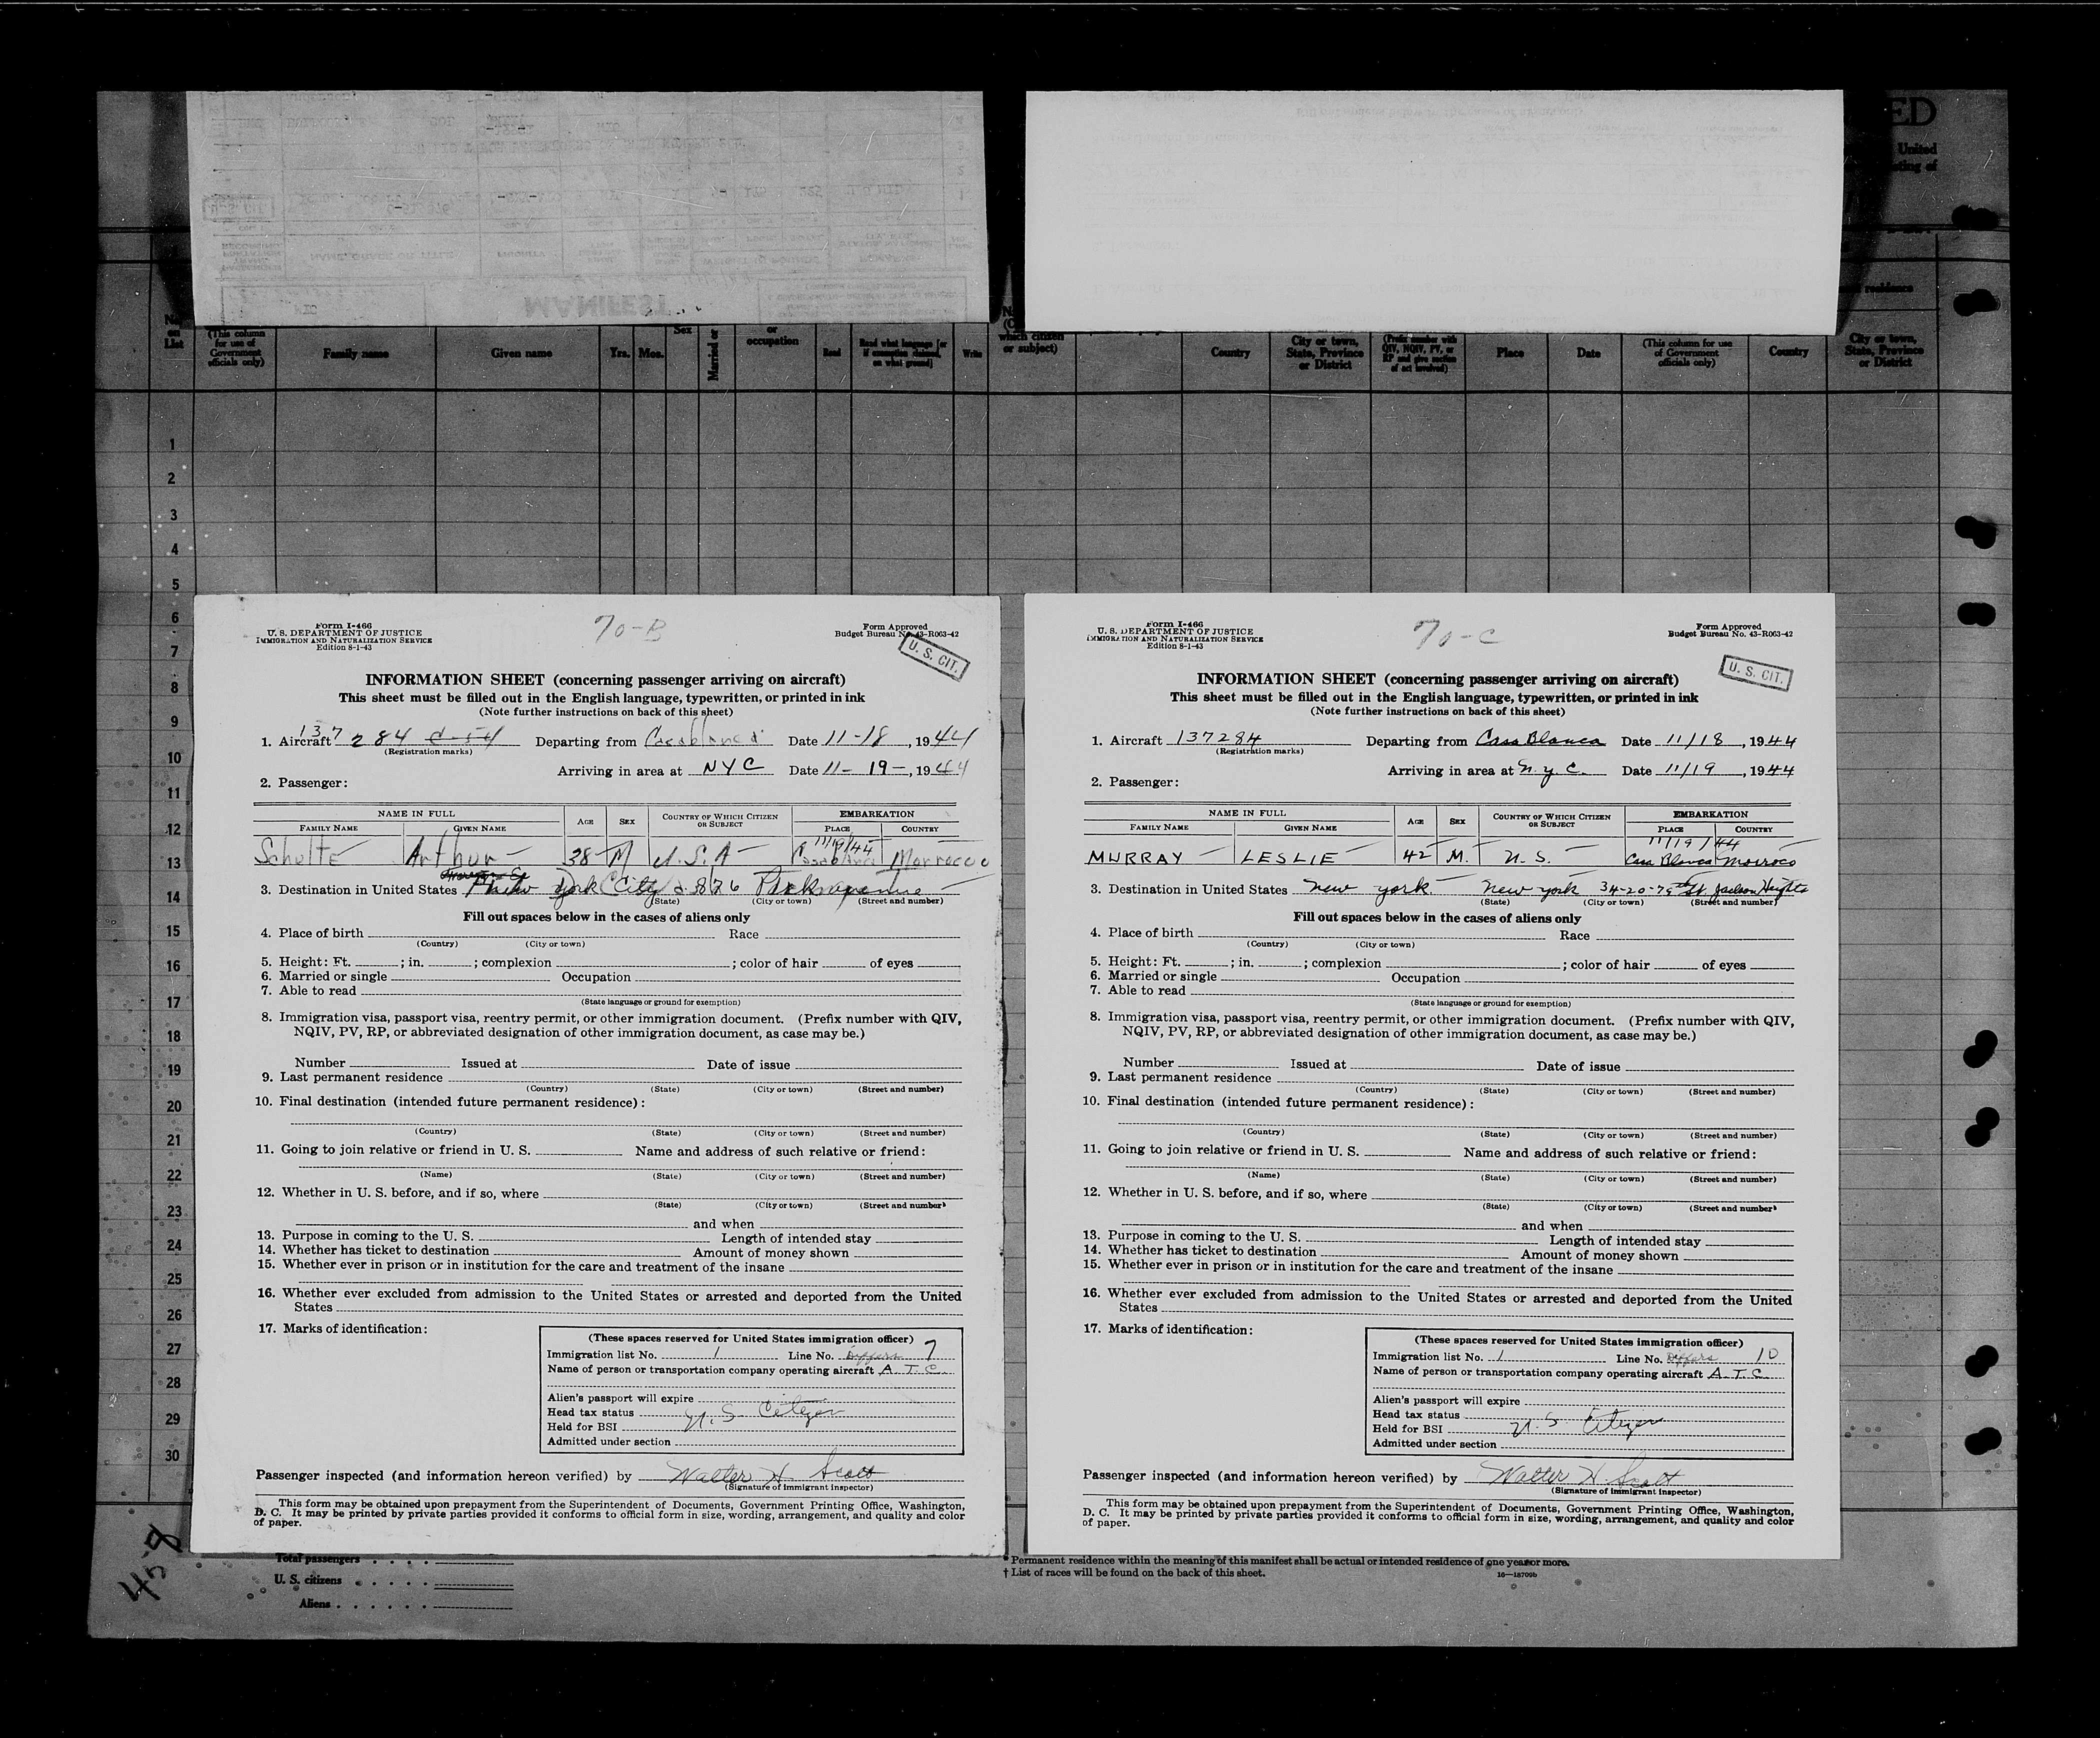 ED
United
MANIFEST
No. on List
(This column for use of Government officials only)
Family name
Given name
Yrs.
Mos.
Sex
Married or
or occupation
Read
Read what language [or if exemption claimed, on what ground]
Write
which citizen or subject)
Country
City or town, State, Province or District
(Prefix number with QIV, NQIV, PV, or RP and give section of act involved)
Place
Date
(This column for use of Government officials only)
Country
City or town, State, Province or District
residence
1
2
3
4
5
6
7
8
9
10
11
12
13
14
15
16
17
18
19
20
21
22
23
24
25
26
27
28
29
30
Form I-466
U. S. DEPARTMENT OF JUSTICE
IMMIGRATION AND NATURALIZATION SERVICE
Edition 8-1-43
70-B
Form Approved
Budget Bureau No. 43-R063-42
U. S. CIT.
INFORMATION SHEET (concerning passenger arriving on aircraft)
This sheet must be filled out in the English language, typewritten, or printed in ink
(Note further instructions on back of this sheet)
1. Aircraft 137 284 C-54 Departing from Casablanca Date 11-18, 1944
(Registration marks)
Arriving in area at NYC Date 11-19-, 1944
2. Passenger:
NAME IN FULL AGE SEX COUNTRY OF WHICH CITIZEN OR SUBJECT EMBARKATION
FAMILY NAME GIVEN NAME PLACE COUNTRY
11/19/44
Schulte Arthur 38 M U.S.A Casablanca Morrocco
3. Destination in United States New York City 826 Park avenue
(State) (City or town) (Street and number)
Fill out spaces below in the cases of aliens only
4. Place of birth Race
(Country) (City or town)
5. Height: Ft. ; in. ; complexion ; color of hair of eyes
6. Married or single Occupation
7. Able to read
(State language or ground for exemption)
8. Immigration visa, passport visa, reentry permit, or other immigration document. (Prefix number with QIV,
NQIV, PV, RP, or abbreviated designation of other immigration document, as case may be.)
Number Issued at Date of issue
9. Last permanent residence
(Country) (State) (City or town) (Street and number)
10. Final destination (intended future permanent residence):
(Country) (State) (City or town) (Street and number)
11. Going to join relative or friend in U. S. Name and address of such relative or friend:
(Name) (State) (City or town) (Street and number)
12. Whether in U. S. before, and if so, where
(State) (City or town) (Street and number)
and when
13. Purpose in coming to the U. S. Length of intended stay
14. Whether has ticket to destination Amount of money shown
15. Whether ever in prison or in institution for the care and treatment of the insane
16. Whether ever excluded from admission to the United States or arrested and deported from the United
States
17. Marks of identification:
(These spaces reserved for United States immigration officer)
Immigration list No. 1 Line No. Differs 7
Name of person or transportation company operating aircraft A. T. C.
Alien's passport will expire
Head tax status U. S Citizen
Held for BSI
Admitted under section
Passenger inspected (and information hereon verified) by Walter H Scott
(Signature of Immigrant Inspector)
This form may be obtained upon prepayment from the Superintendent of Documents, Government Printing Office, Washington,
D. C. It may be printed by private parties provided it conforms to official form in size, wording, arrangement, and quality and color
of paper.
Form I-466
U. S. DEPARTMENT OF JUSTICE
IMMIGRATION AND NATURALIZATION SERVICE
Edition 8-1-43
70-C
Form Approved
Budget Bureau No. 43-R063-42
U. S. CIT.
INFORMATION SHEET (concerning passenger arriving on aircraft)
This sheet must be filled out in the English language, typewritten, or printed in ink
(Note further instructions on back of this sheet)
1. Aircraft 137284 Departing from CasaBlanca Date 11/18, 1944
(Registration marks)
Arriving in area at N.y.C. Date 11/19, 1944
2. Passenger:
NAME IN FULL AGE SEX COUNTRY OF WHICH CITIZEN OR SUBJECT EMBARKATION
FAMILY NAME GIVEN NAME PLACE COUNTRY
11/19/44
MURRAY LESLIE 42 M. U.S. Casa Blanca Morroco
3. Destination in United States new york. new york 34-20-79th St. Jackson Heights
(State) (City or town) (Street and number)
Fill out spaces below in the cases of aliens only
4. Place of birth Race
(Country) (City or town)
5. Height: Ft. ; in. ; complexion ; color of hair of eyes
6. Married or single Occupation
7. Able to read
(State language or ground for exemption)
8. Immigration visa, passport visa, reentry permit, or other immigration document. (Prefix number with QIV,
NQIV, PV, RP, or abbreviated designation of other immigration document, as case may be.)
Number Issued at Date of issue
9. Last permanent residence
(Country) (State) (City or town) (Street and number)
10. Final destination (intended future permanent residence):
(Country) (State) (City or town) (Street and number)
11. Going to join relative or friend in U. S. Name and address of such relative or friend:
(Name) (State) (City or town) (Street and number)
12. Whether in U. S. before, and if so, where
(State) (City or town) (Street and number)
and when
13. Purpose in coming to the U. S. Length of intended stay
14. Whether has ticket to destination Amount of money shown
15. Whether ever in prison or in institution for the care and treatment of the insane
16. Whether ever excluded from admission to the United States or arrested and deported from the United
States
17. Marks of identification:
(These spaces reserved for United States immigration officer)
Immigration list No. 1 Line No. Differs 10
Name of person or transportation company operating aircraft A. T. C.
Alien's passport will expire
Head tax status
Held for BSI U. S Citizen
Admitted under section
Passenger inspected (and information hereon verified) by Walter H. Scott
(Signature of Immigrant Inspector)
This form may be obtained upon prepayment from the Superintendent of Documents, Government Printing Office, Washington,
D. C. It may be printed by private parties provided it conforms to official form in size, wording, arrangement, and quality and color
of paper.
Total passengers
U. S. citizens
Aliens
* Permanent residence within the meaning of this manifest shall be actual or intended residence of one year or more.
† List of races will be found on the back of this sheet.
16—18709b